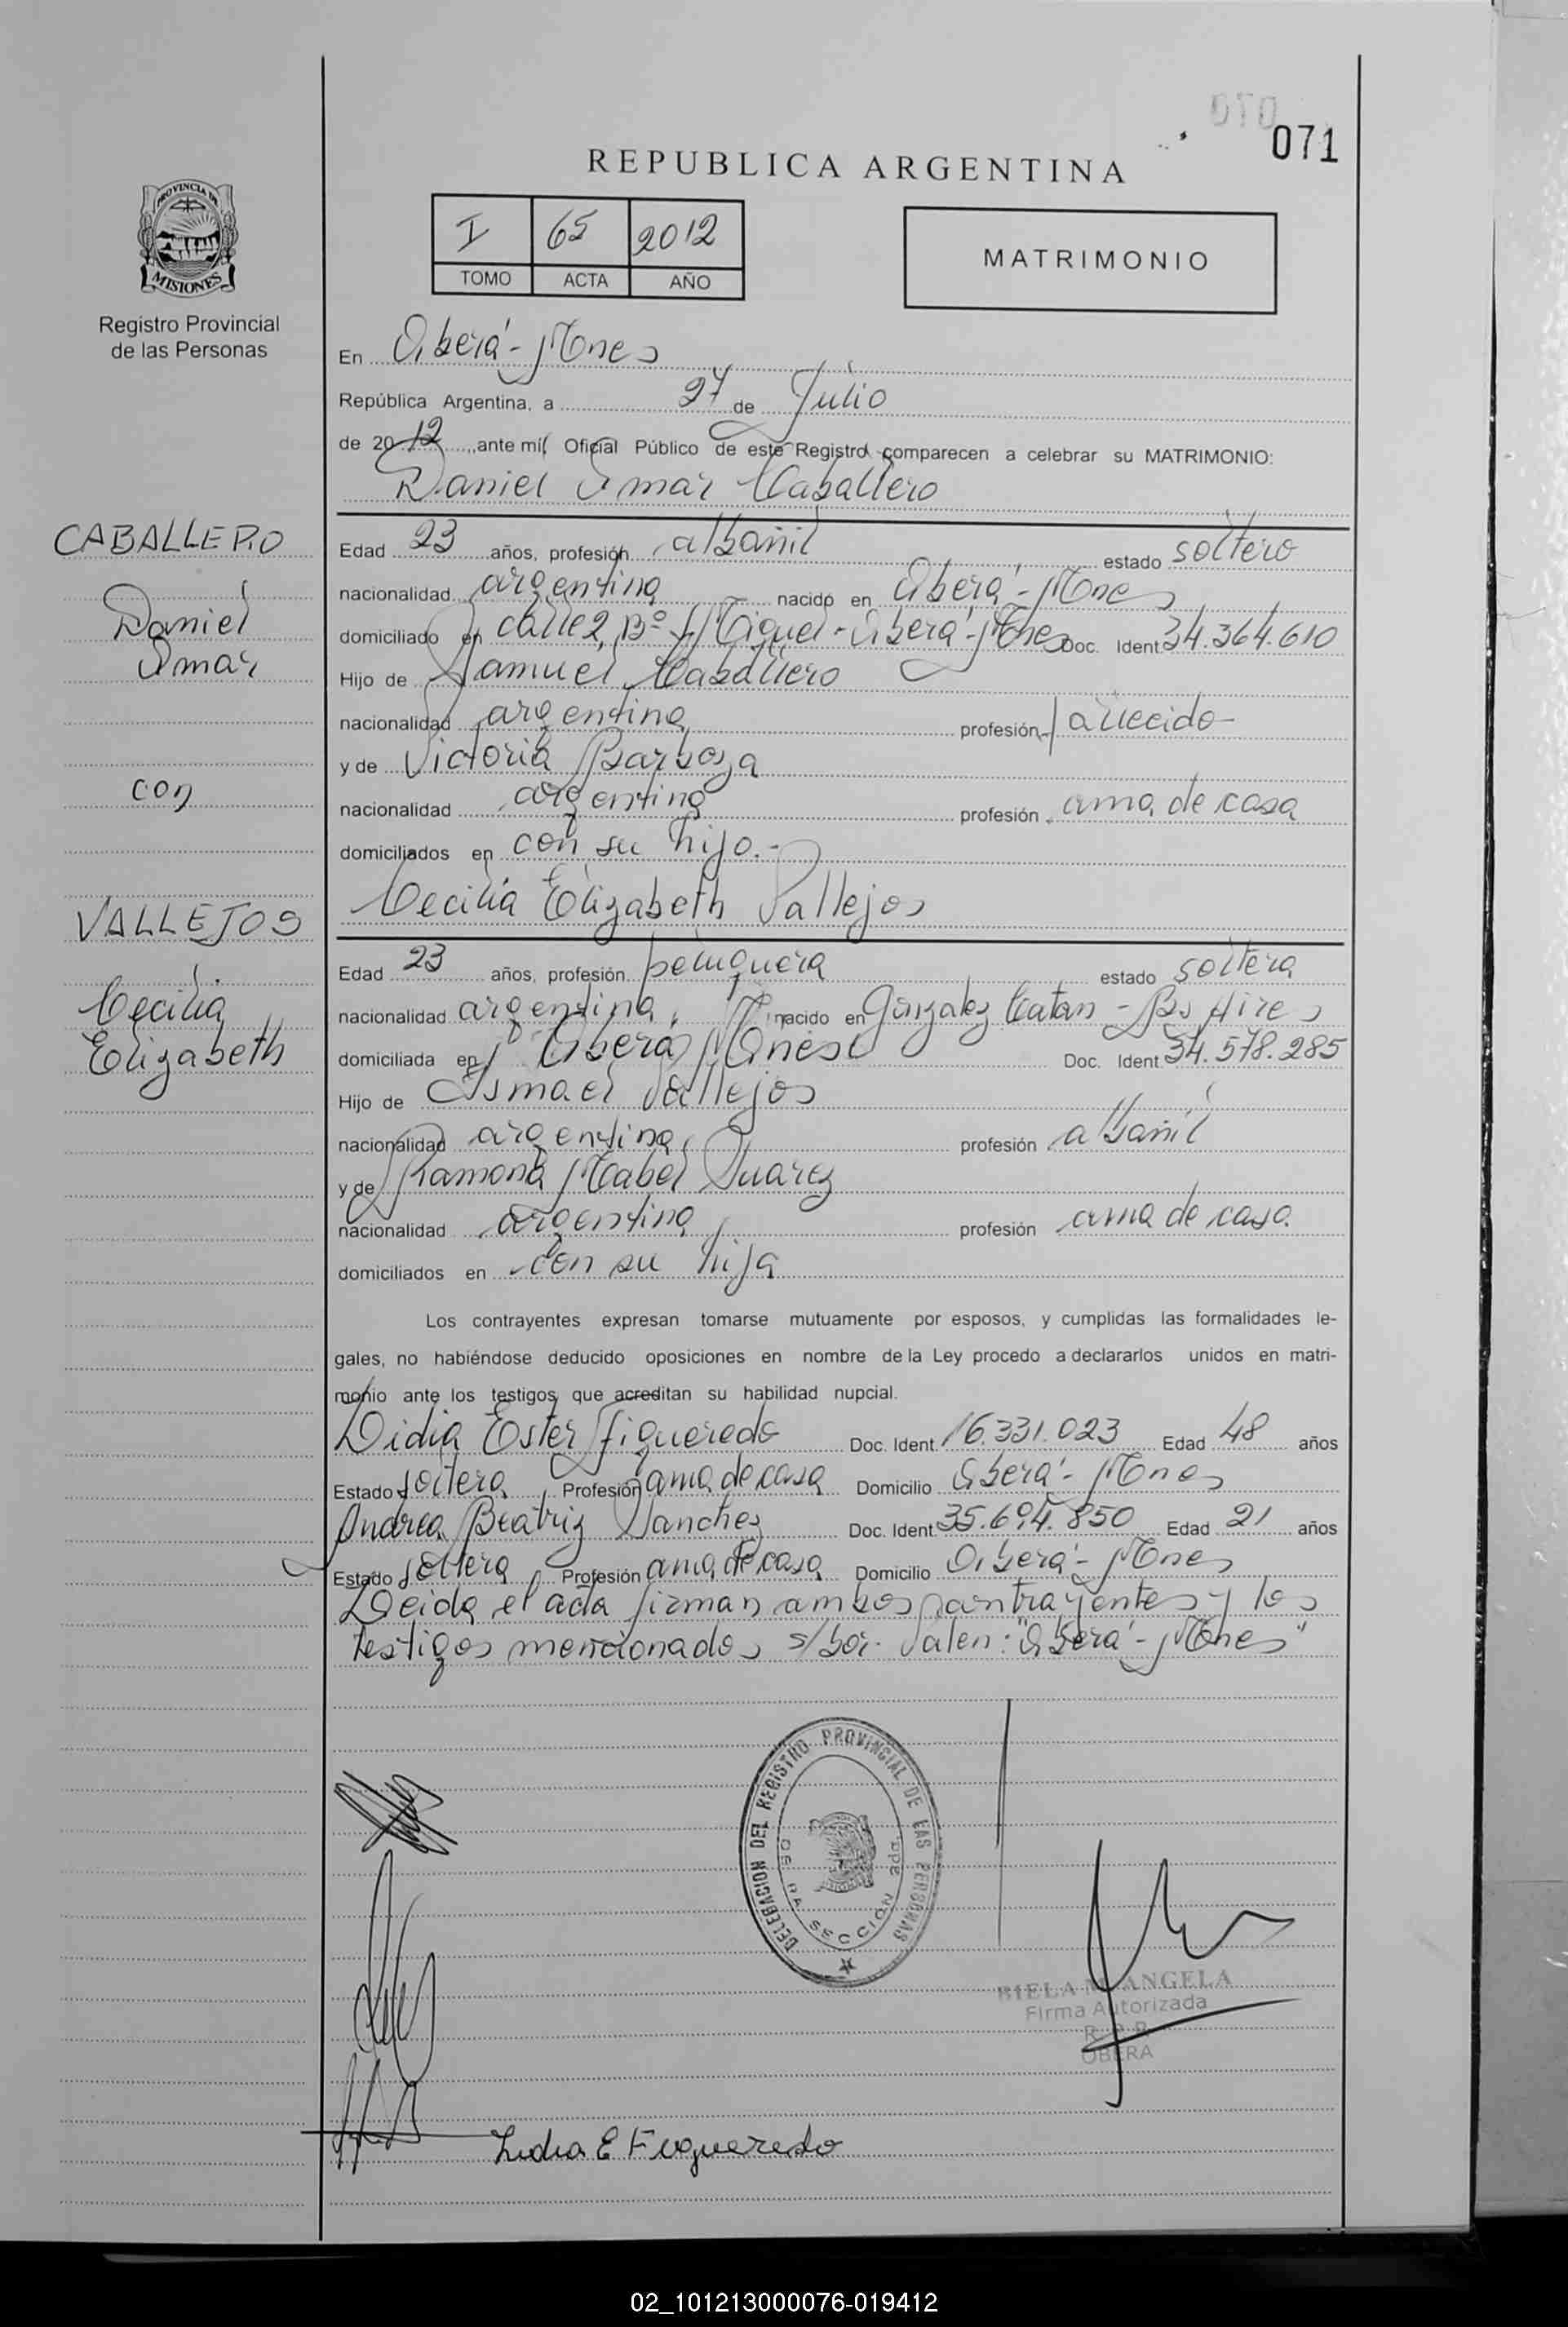 070
071
REPUBLICA ARGENTINA
I 65 2012
TOMO ACTA AÑO
MATRIMONIO
PROVINCIA DE
MISIONES
Registro Provincial
de las Personas
En Oberá - Mnes
República Argentina, a 27 de Julio
de 2012, ante mí, Oficial Público de este Registro comparecen a celebrar su MATRIMONIO:
Daniel Omar Caballero
CABALLERO
Daniel
Omar
con
VALLEJOS
Cecilia
Elizabeth
Edad 23 años, profesión albañil estado soltero
nacionalidad argentina nacido en Oberá - Mnes
domiciliado en calle 2, Bº S/Miguel - Oberá - Mnes Doc. Ident. 34.364.610
Hijo de Samuel Caballero
nacionalidad argentina profesión fallecido
y de Victoria Barboza
nacionalidad argentina profesión ama de casa
domiciliados en con su hijo.-
Cecilia Elizabeth Vallejos
Edad 23 años, profesión peluquera estado soltera
nacionalidad argentina, nacido en González Catan - Bs Aires
domiciliada en Oberá, Mnes Doc. Ident. 34.578.285
Hijo de Ismael Vallejos
nacionalidad argentina, profesión albañil
y de Ramona Mabel Suarez
nacionalidad argentina, profesión ama de casa.
domiciliados en con su hija
Los contrayentes expresan tomarse mutuamente por esposos, y cumplidas las formalidades le-
gales, no habiéndose deducido oposiciones en nombre de la Ley procedo a declararlos unidos en matri-
monio ante los testigos que acreditan su habilidad nupcial.
Lidia Ester Figueredo Doc. Ident. 16.331.023 Edad 48 años
Estado soltera Profesión ama de casa Domicilio Oberá - Mnes
Andrea Beatriz Sanchez Doc. Ident. 35.694.850 Edad 21 años
Estado soltera Profesión ama de casa Domicilio Oberá - Mnes
Leida el acta firman ambos contrayentes y los
testigos mencionados s/bor. Valen: "Oberá - Mnes"
DELEGACION DEL REGISTRO PROVINCIAL DE LAS PERSONAS
SECCION
BIELA M. ANGELA
Firma Autorizada
R.P.P.
OBERA
Lidia E Figueredo
02_101213000076-019412